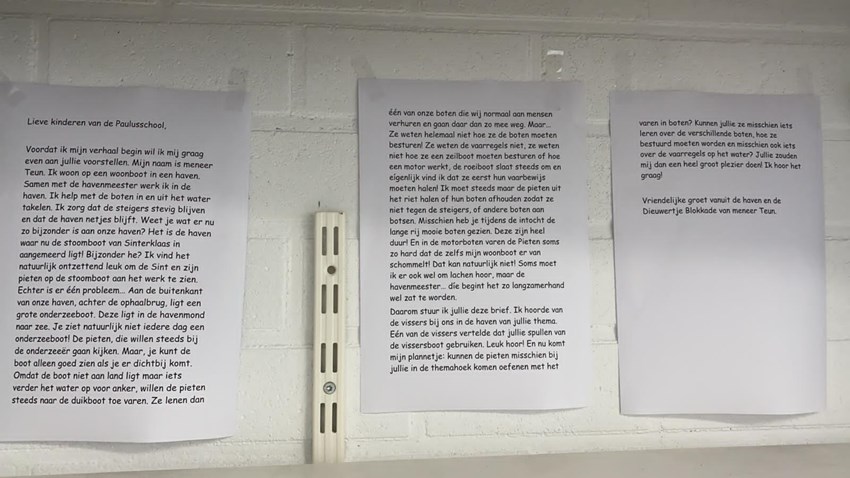 Lieve kinderen van de Paulusschool,
Voordat ik mijn verhaal begin wil ik mij graag
even aan jullie voorstellen. Mijn naam is meneer
Teun. Ik woon op een woonboot in een haven.
Samen met de havenmeester werk ik in de
haven. Ik help met de boten in en uit het water
takelen. Ik zorg dat de steigers stevig blijven
en dat de haven netjes blijft. Weet je wat er nu
zo bijzonder is aan onze haven? Het is de haven
waar nu de stoomboot van Sinterklaas in
aangemeerd ligt! Bijzonder he? Ik vind het
natuurlijk ontzettend leuk om de Sint en zijn
pieten op de stoomboot aan het werk te zien.
Echter is er één probleem... Aan de buitenkant
van onze haven, achter de ophaalbrug, ligt een
grote onderzeeboot. Deze ligt in de havenmond
naar zee. Je ziet natuurlijk niet iedere dag een
onderzeeboot! De pieten, die willen steeds bij
de onderzeeër gaan kijken. Maar, je kunt de
boot alleen goed zien als je er dichtbij komt.
Omdat de boot niet aan land ligt maar iets
verder het water op voor anker, willen de pieten
steeds naar de duikboot toe varen. Ze lenen dan
één van onze boten die wij normaal aan mensen
verhuren en gaan daar dan zo mee weg. Maar...
Ze weten helemaal niet hoe ze de boten moeten
besturen! Ze weten de vaarregels niet, ze weten
niet hoe ze een zeilboot moeten besturen of hoe
een motor werkt, de roeiboot slaat steeds om en
eigenlijk vind ik dat ze eerst hun vaarbewijs
moeten halen! Ik moet steeds maar de pieten uit
het riet halen of hun boten afhouden zodat ze
niet tegen de steigers, of andere boten aan
botsen. Misschien heb je tijdens de intocht de
lange rij mooie boten gezien. Deze zijn heel
duur! En in de motorboten varen de Pieten soms
zo hard dat de zelfs mijn woonboot er van
schommelt! Dat kan natuurlijk niet! Soms moet
ik er ook wel om lachen hoor, maar de
havenmeester... die begint het zo langzamerhand
wel zat te worden.
Daarom stuur ik jullie deze brief. Ik hoorde van
de vissers bij ons in de haven van jullie thema.
Eén van de vissers vertelde dat jullie spullen van
de vissersboot gebruiken. Leuk hoor! En nu komt
mijn plannetje: kunnen de pieten misschien bij
jullie in de themahoek komen oefenen met het
varen in boten? Kunnen jullie ze misschien iets
leren over de verschillende boten, hoe ze
bestuurd moeten worden en misschien ook iets
over de vaarregels op het water? Jullie zouden
mij dan een heel groot plezier doen! Ik hoor het
graag!
Vriendelijke groet vanuit de haven en de
Dieuwertje Blokkade van meneer Teun.